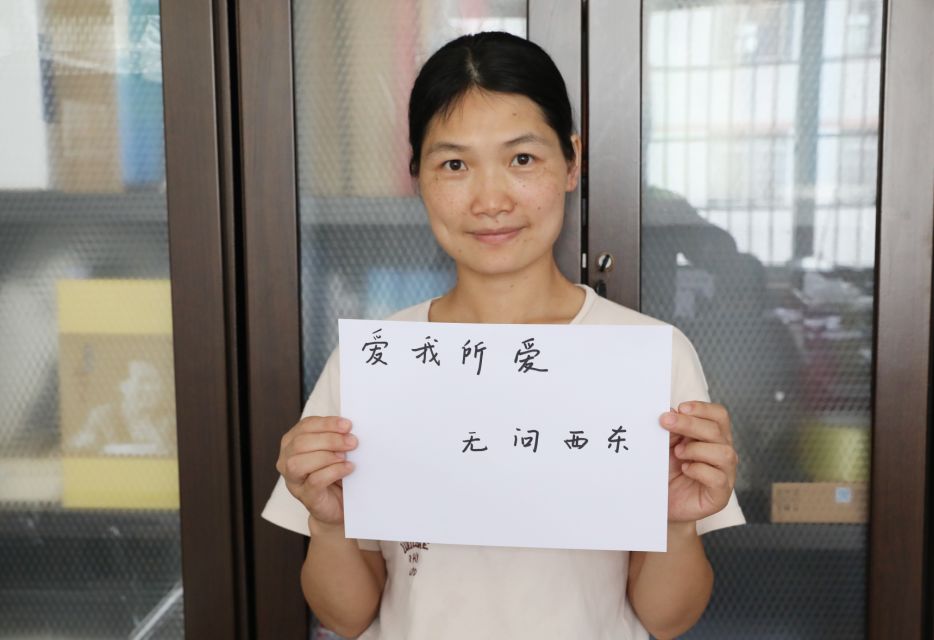 爱我所爱
无问西东